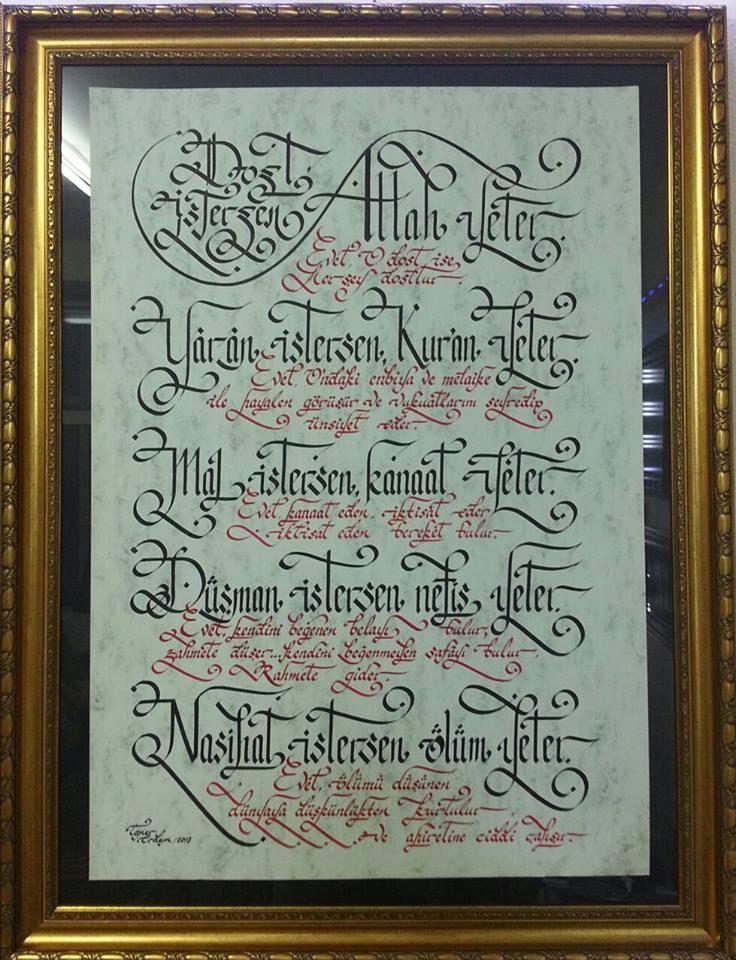 Dost
istersen
Allah yeter.
Evet O dost ise,
Herşey dosttur.
Yârân istersen, Kur'an yeter.
Evet O'ndaki enbiya ve melaike
ile hayalen görüşür ve vukuatlarını seyredip
ünsiyet eder.
Mal istersen, kanaat yeter.
Evet kanaat eden, iktisat eder
iktisat eden bereket bulur.
Düşman istersen nefis yeter.
Evet, kendini beğenen belayı bulur,
zahmete düşer...kendini beğenmeyen safâyı bulur.
Rahmete gider.
Nasihat istersen ölüm yeter.
Evet, ölümü düşünen
dünyaya düşkünlükten kurtulur
ve ahiretine ciddi çalışır.